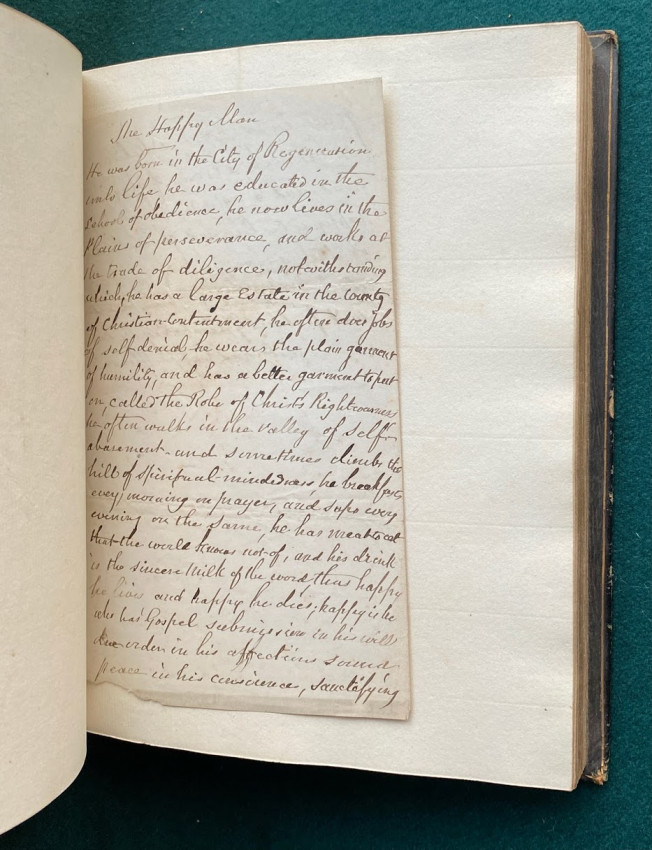 The Happy Man
He was born in the City of Regeneration
unto life he was educated in the
Schools of obedience, he now lives in the
Plains of perseverance, and works at
the trade of diligence, notwithstanding
which, he has a large Estate in the County
of Christian-Contentment, he often does jobs
of self denial, he wears the plain garment
of humility, and has a better garment to put
on, called the Robe of Christ's Righteousness
he often walks in the valley of self-
abasement- and sometimes climbs the
hill of spiritual-mindedness, he breakfasts
every morning on prayer, and sups every
evening on the same, he has meat to eat
that the world knows not of, and his drink
is the sincere Milk of the word, thus happy
he lives and happy he dies; happy is he
who has Gospel submission in his will
due order in his affections sound
peace in his conscience, sanctifying